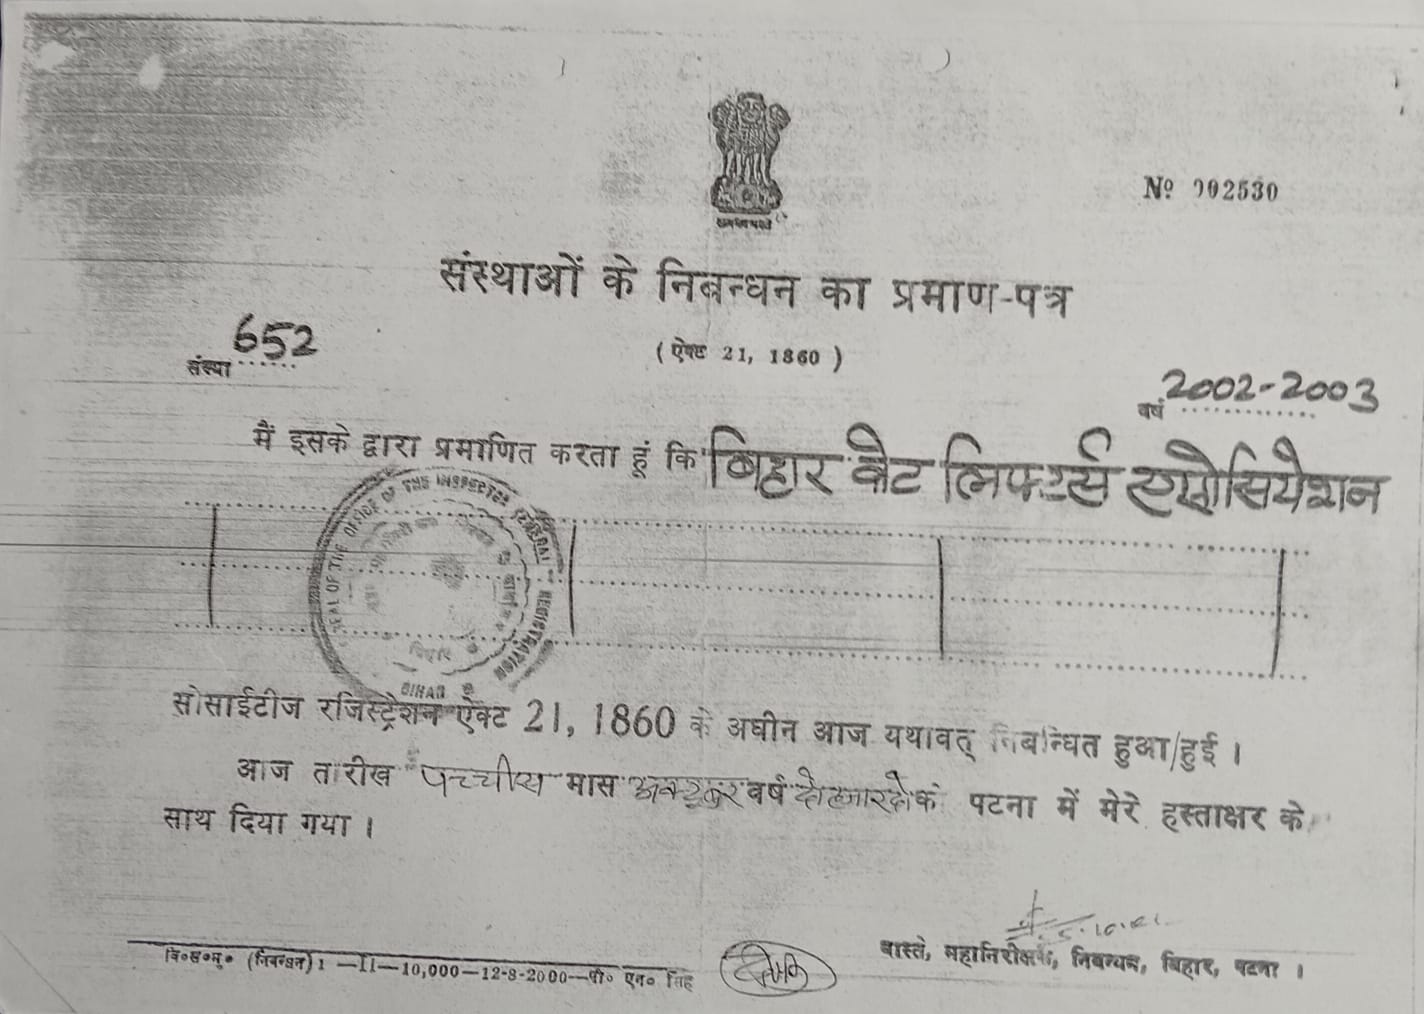 No 002530
संस्थाओं के निबन्धन का प्रमाण-पत्र
संख्या 652
( ऐक्ट 21, 1860 )
वर्ष 2002-2003
मैं इसके द्वारा प्रमाणित करता हूं कि बिहार वेट लिफ्टर्स एसोसियेशन
SEAL OF THE OFFICE OF THE INSPECTOR GENERAL REGISTRATION
BIHAR
सोसाईटीज रजिस्ट्रेशन ऐक्ट 21, 1860 के अधीन आज यथावत् निबन्धित हुआ/हुई ।
आज तारीख पच्चीस मास अक्टूबर वर्ष दो हजार दो कं पटना में मेरे हस्ताक्षर के
साथ दिया गया ।
वास्ते, महानिरीक्षक, निबन्धन, बिहार, पटना ।
वि०स०मु० (निबन्धन) 1 —II—10,000—12-8-2000—पी० एन० सिंह